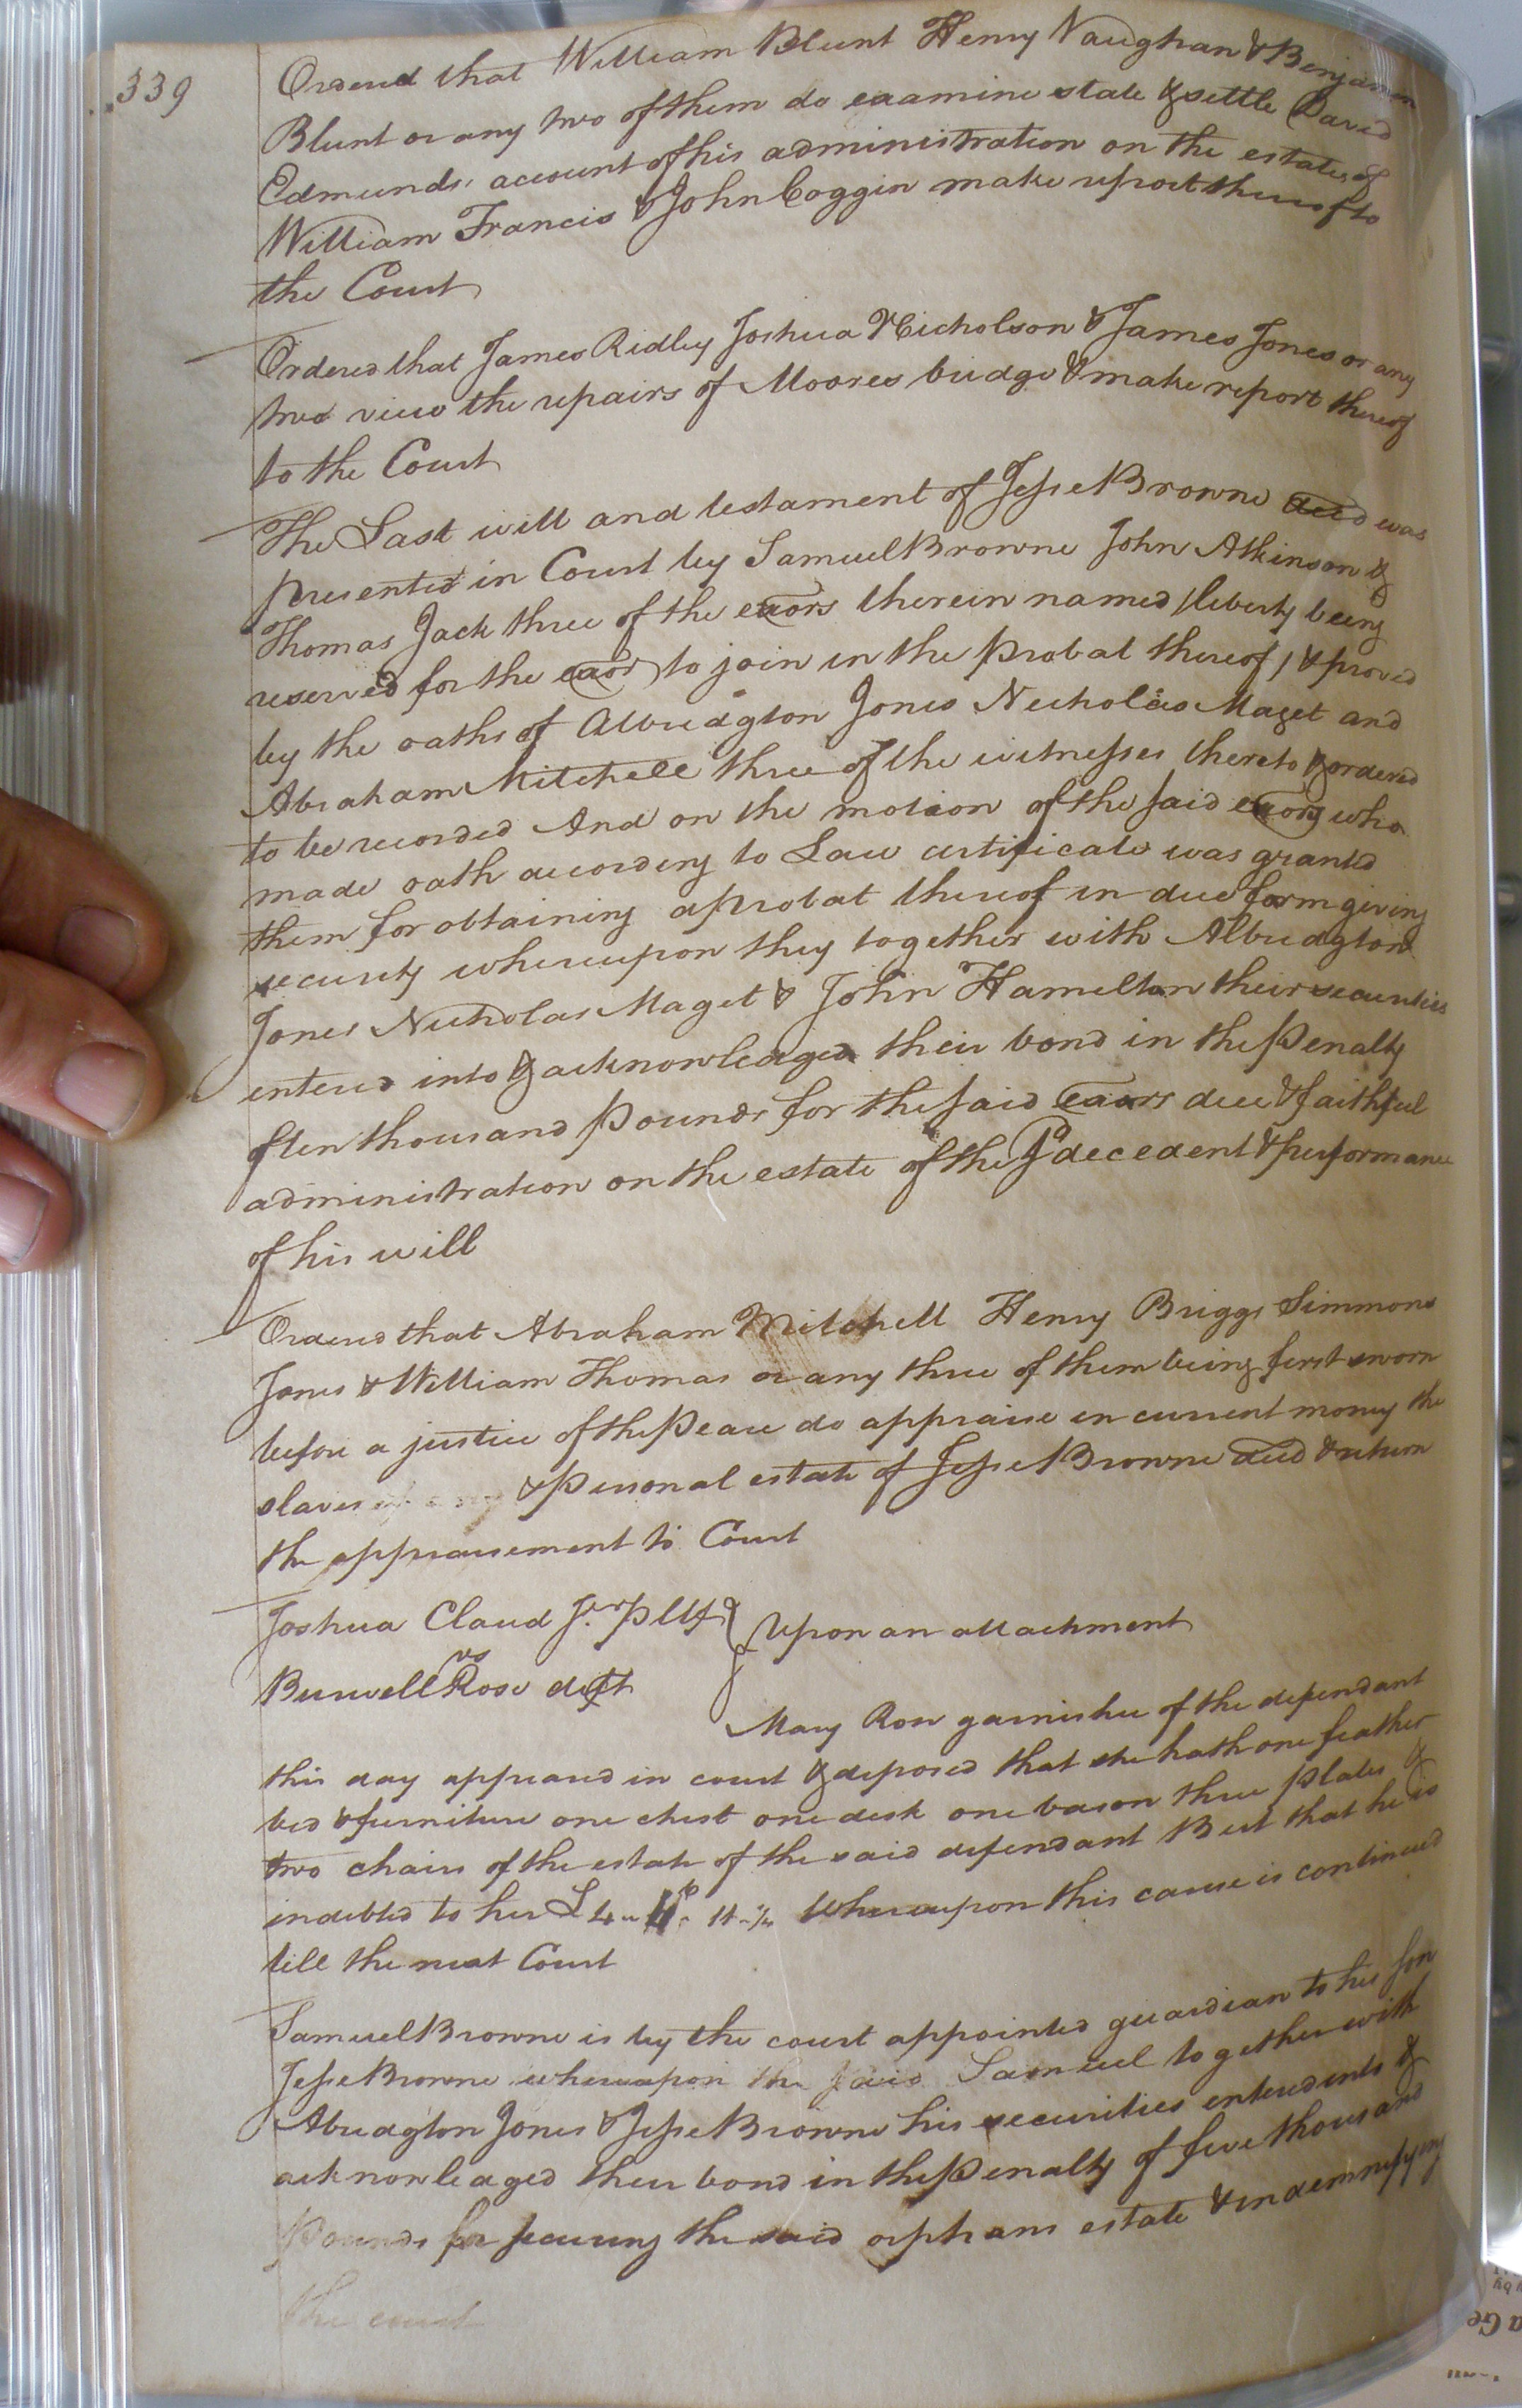 339
Ordered that William Blunt Henry Vaughan & Benjamin
Blunt or any two of them do examine state & settle David
Edmunds, account of his administration on the estates of
William Francis & John Coggin make report thereof to
the Court
Ordered that James Ridley Joshua Nicholson & James Jones or any
two view the repairs of Moores bridge & make report thereof
to the Court
The Last will and testament of Jesse Browne decd was
presented in Court by Samuel Browne John Atkinson &
Thomas Jack three of the exors therein named /liberty being
reserved for the exor to join in the probat thereof / & proved
by the oaths of Albridgton Jones Nicholas Maget and
Abraham Mitchell three of the witnesses thereto & ordered
to be recorded And on the motion of the said exors who
made oath according to Law certificate was granted
them for obtaining a probat thereof in due form giving
security whereupon they together with Albridgton
Jones Nicholas Maget & John Hamelton their securities
entered into & acknowledged their bond in the Penalty
of ten thousand Pounds for the said exors due & faithful
administration on the estate of the sd decedent & performance
of his will
Ordered that Abraham Mitchell Henry Briggs Simmons
Jones & William Thomas or any three of them being first sworn
before a justice of the Peace do appraise in current money the
slaves if any & Personal estate of Jesse Browne decd & return
the appraisement to Court
Joshua Claud Jr. Pltf
Upon an attachment
vs
Burwell Rose deft
Mary Rose garnishee of the defendant
this day appeared in court & deposed that she hath one feather
bed & furniture one chest one desk one bason three plates &
two chairs of the estate of the said defendant But that he is
indebted to her £ 4 Whereupon this cause is continued
till the next Court
Samuel Browne is by the court appointed guardian to his son
Jesse Browne whereupon the said Samuel together with
Abridgton Jones & Jesse Browne his securities entered into &
acknowledged their bond in the Penalty of five thousand
Pounds for securing the said orphans estate & indemnifying
the court